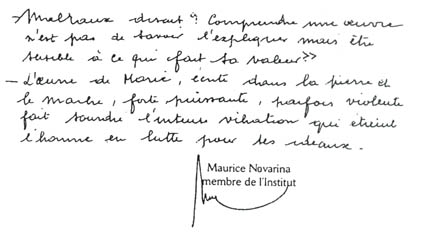 Malraux disait "Comprendre une œuvre
n'est pas de savoir l'expliquer mais être
sensible à ce qui fait sa valeur"
— L'œuvre de Marie, écrite dans la pierre et
le marbre, forte puissante, parfois violente
fait sourdre l'intense vibration qui étreint
l'homme en lutte pour ses idéaux.
Maurice Novarina
membre de l'Institut